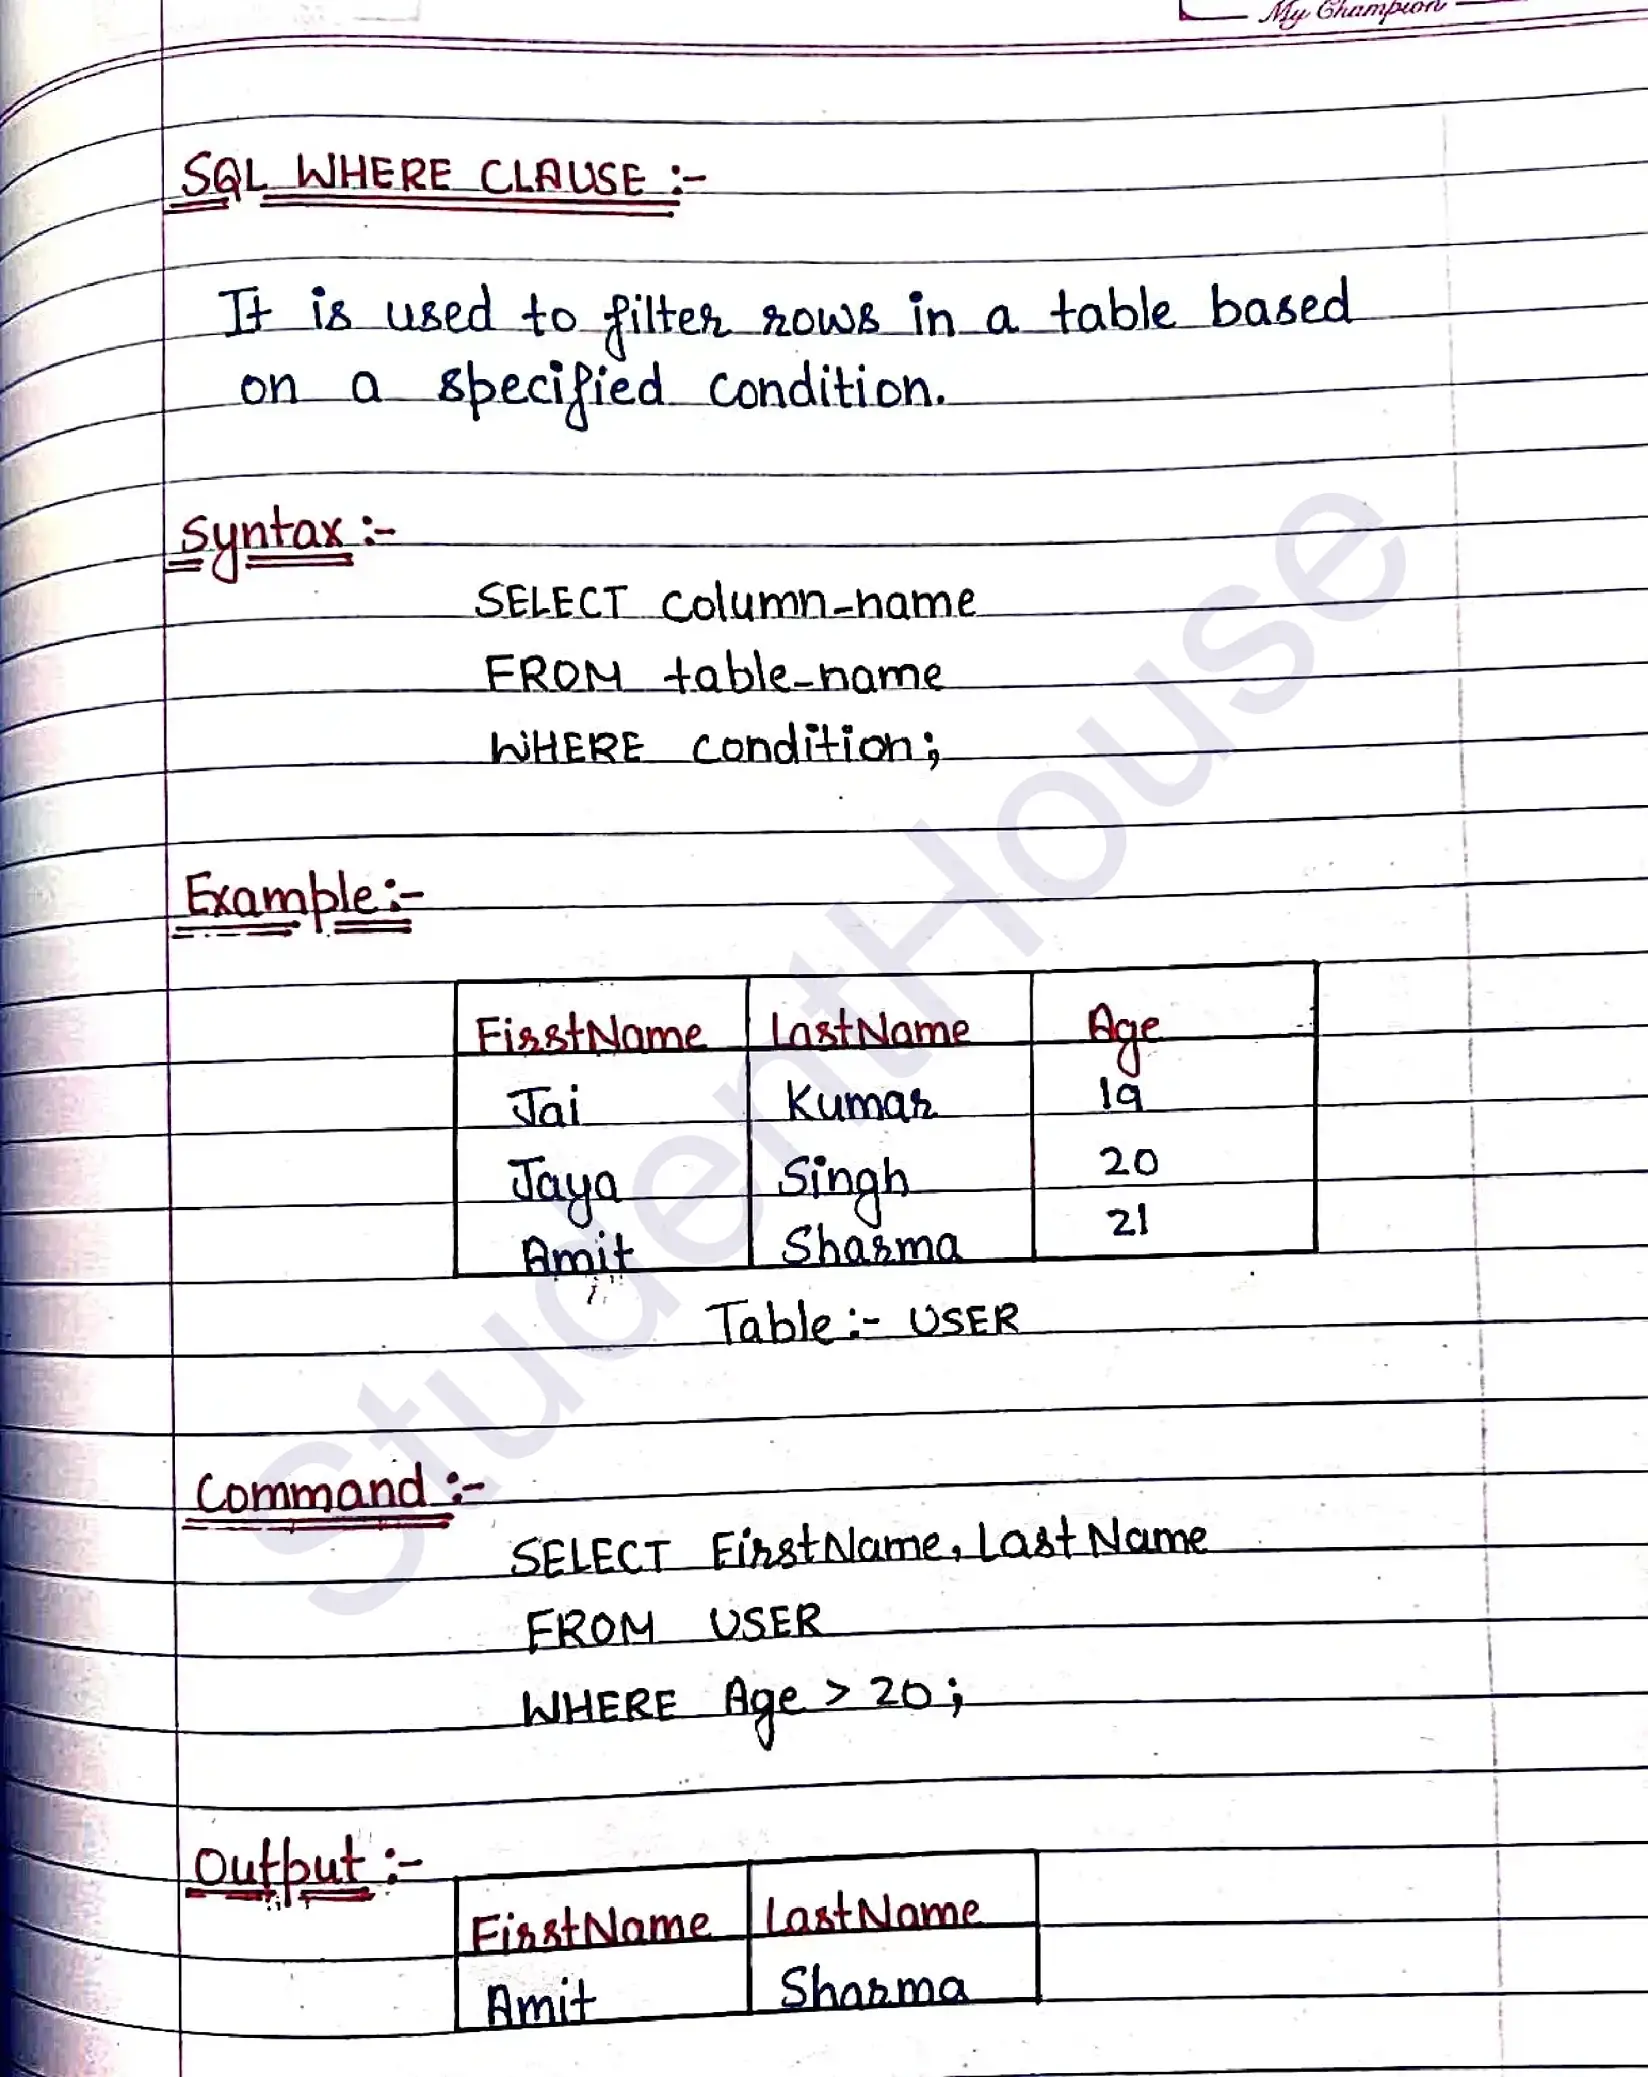 My Champion
SQL WHERE CLAUSE :-
It is used to filter rows in a table based
on a specified condition.
Syntax :-
SELECT column-name
FROM table-name
WHERE condition;
Example :-
FirstName LastName Age
Jai Kumar 19
Jaya Singh 20
Amit Sharma 21
Table :- USER
Command :-
SELECT FirstName, LastName
FROM USER
WHERE Age > 20;
Output :-
FirstName LastName
Amit Sharma
StudentHouse